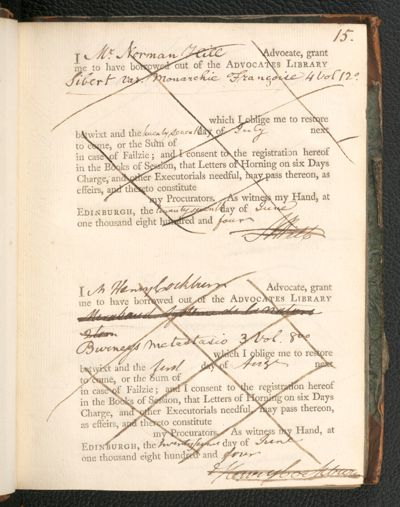 15.
I Mr Norman Hill Advocate, grant
me to have borrowed out of the ADVOCATES LIBRARY
Sibert Monarchie Françoise 4 Vol 12o
which I oblige me to restore
betwixt and the twenty seventh day of July next
to come, or the Sum of
in case of Failzie; and I consent to the registration hereof
in the Books of Session, that Letters of Horning on six Days
Charge, and other Executorials needful, may pass thereon, as
effeirs, and thereto constitute
my Procurators. As witness my Hand, at
EDINBURGH, the twenty seventh day of June
one thousand eight hundred and four
I Henry Cockburn Advocate, grant
me to have borrowed out of the ADVOCATES LIBRARY
Mirabaud Systeme de la nature
Burneys Metastasio 3 Vol. 8vo
which I oblige me to restore
betwixt and the first day of Augt next
to come, or the Sum of
in case of Failzie; and I consent to the registration hereof
in the Books of Session, that Letters of Horning on six Days
Charge, and other Executorials needful, may pass thereon,
as effeirs, and thereto constitute
my Procurators. As witness my Hand, at
EDINBURGH, the day of June
one thousand eight hundred and four
Henry Cockburn